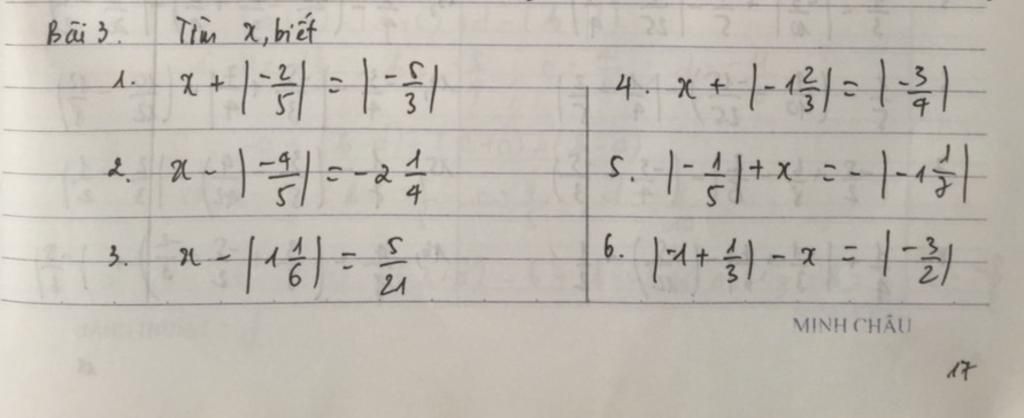 Bài 3. Tìm x, biết
1. x + |-2/5| = |-5/3|
2. x - |-4/5| = -2 1/4
3. x - |1 1/6| = 5/21
4. x + |-1 2/3| = |-3/4|
5. |-1/5| + x = - |-1 1/7|
6. |-1 + 1/3| - x = |-3/2|
MINH CHÂU
17